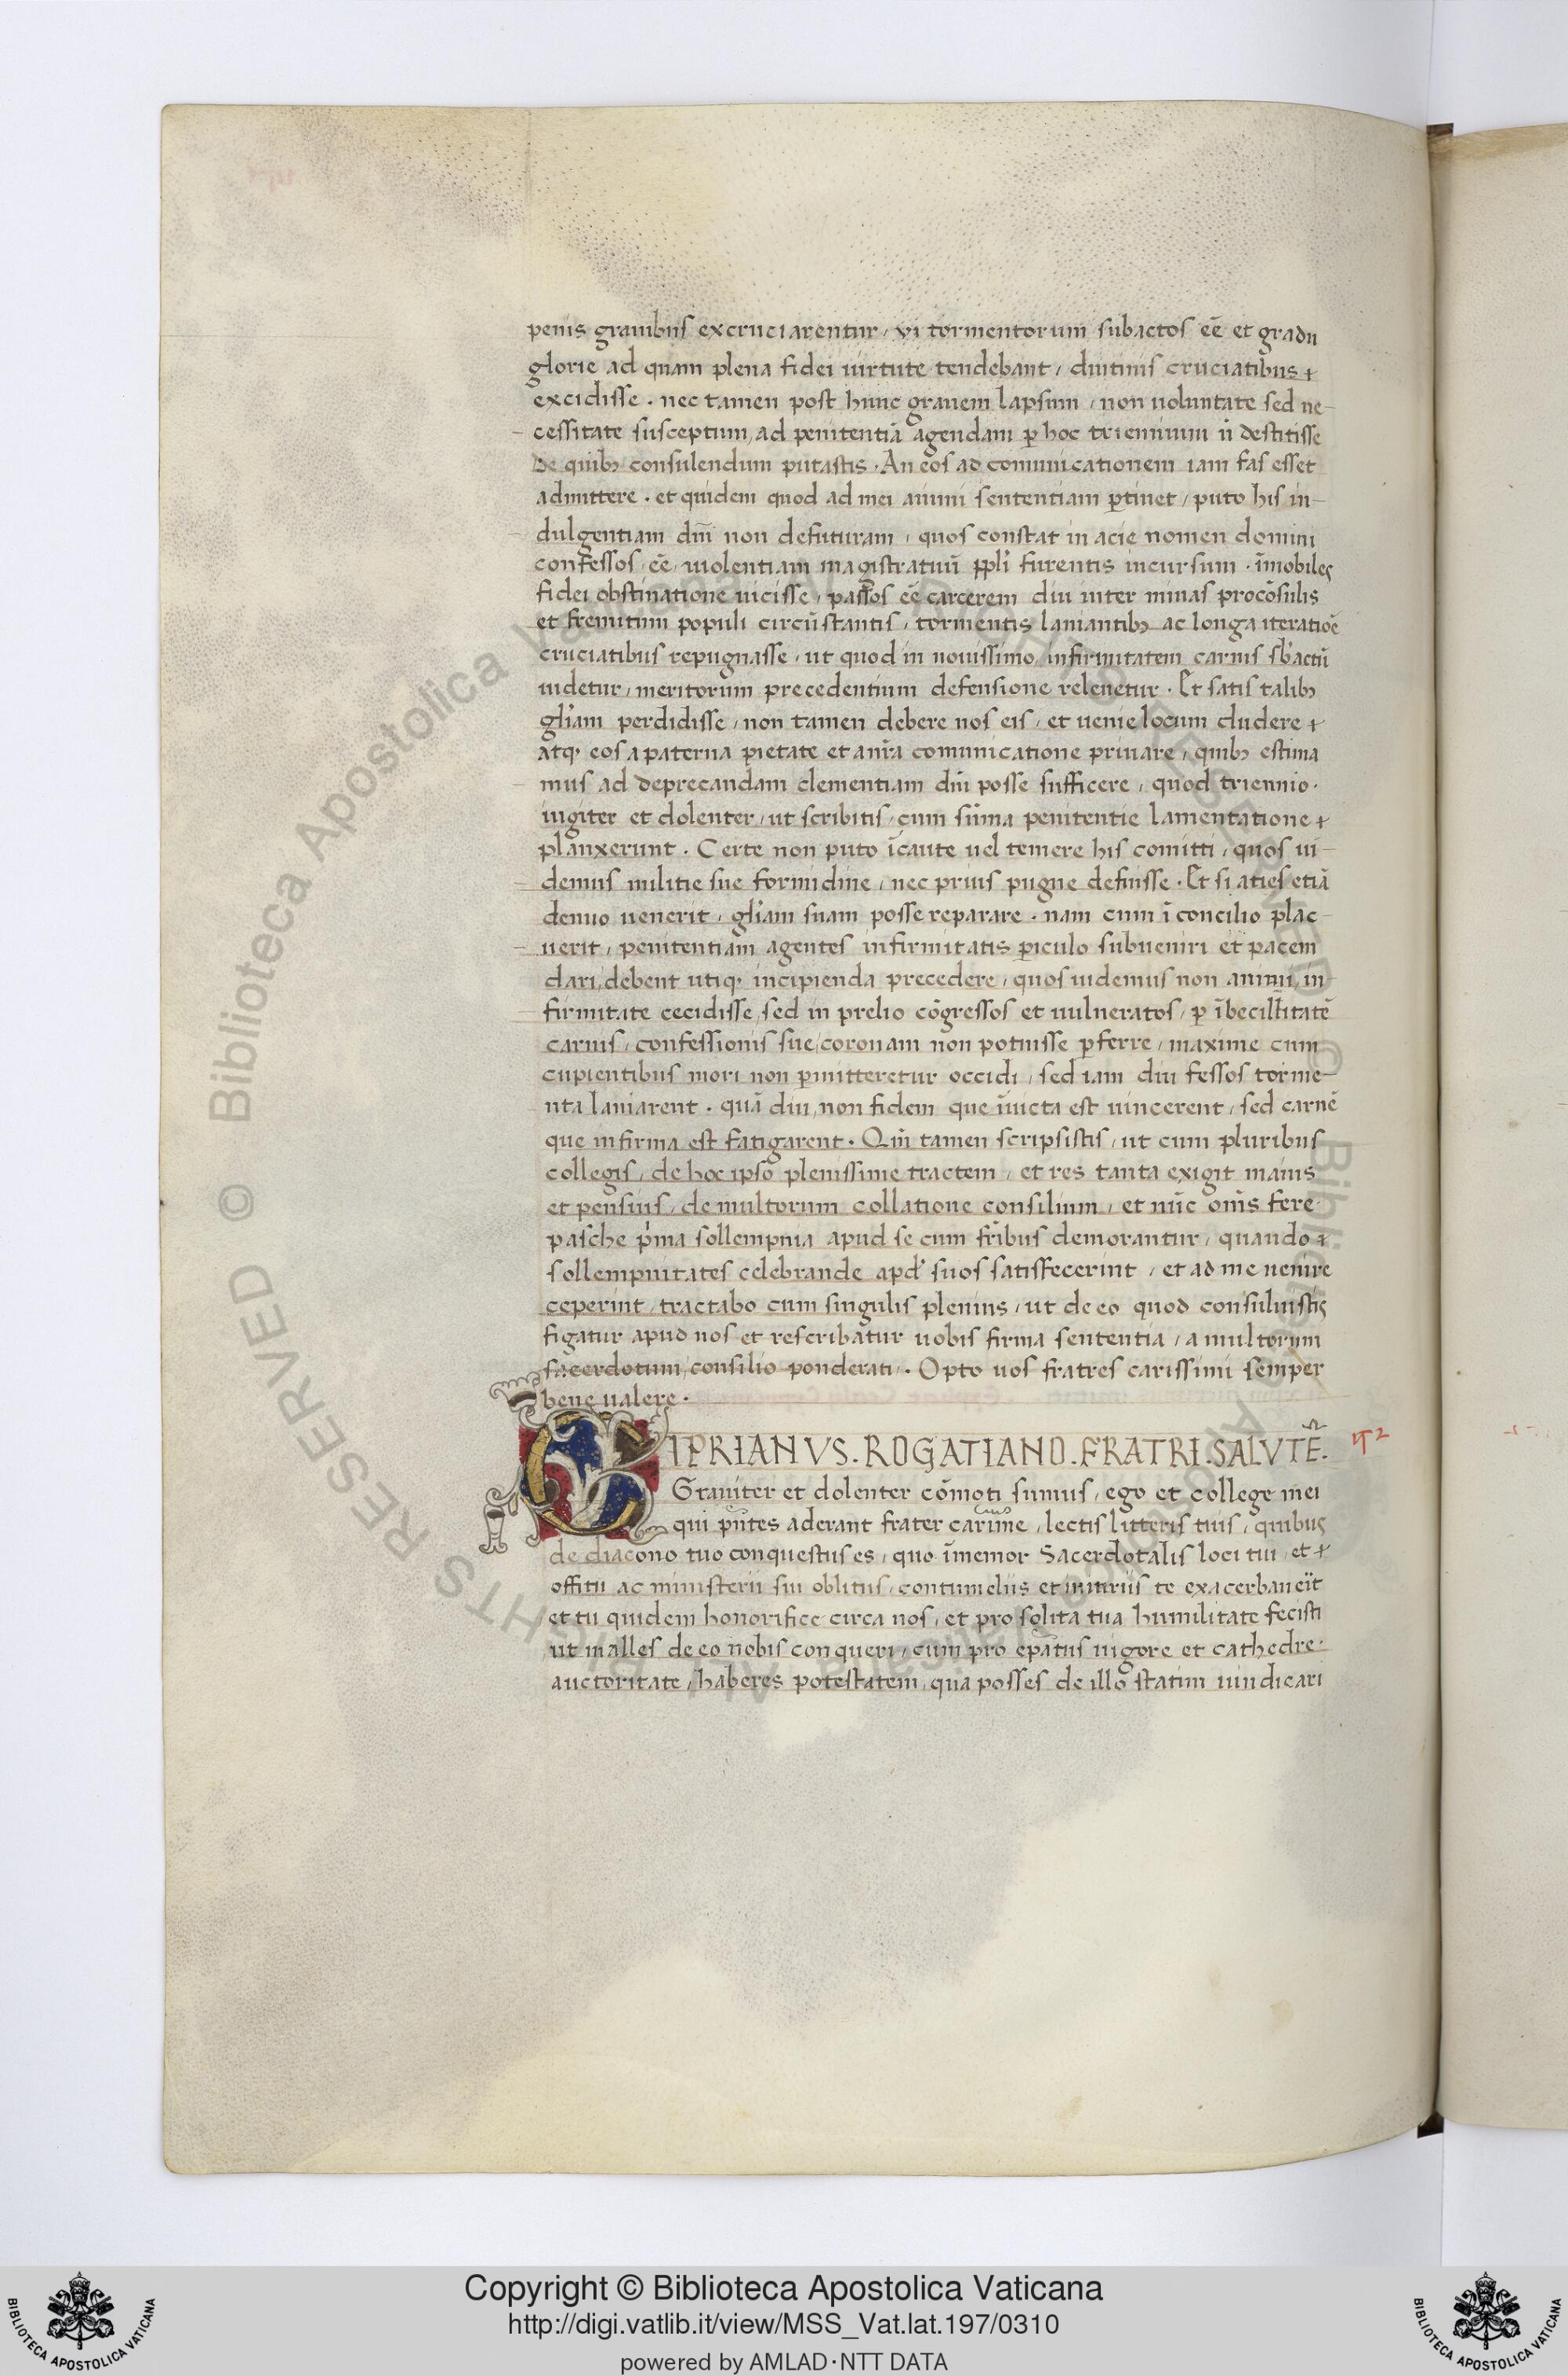 penis grauibus excruciarentur, vi tormentorum subactos eē et gradu
glorie ad quam plena fidei uirtute tendebant, diutinis cruciatibus
excidisse. nec tamen post hunc grauem lapsum, non uoluntate sed ne-
cessitate susceptum, ad penitentiā agendam p̱ hoc triennium ñ destitisse
de quibꝫ consulendum putastis. An eos ad comunicationem iam fas esset
admittere. et quidem quod ad mei animi sententiam p̱tinet, puto his in-
dulgentiam dñi non defuturam, quos constat in acie nomen domini
confessos eē, uiolentiam magistratuū ppli furentis incursum. īmobiles
fidei obstinatione uicisse, passos eē carcerem diu inter minas procōsulis
et fremitum populi circūstantis, tormentis laniantibꝫ ac longa iteratiōe
cruciatibus repugnasse, ut quod in nouissimo infirmitatem carnis sb̄actū
uidetur, meritorum precedentium defensione releuetur. Et satis talibꝫ
gliam perdidisse, non tamen debere nos eis, et uenie locum cludere
atqꝫ eos a paterna pietate et a nr̄a comunicatione priuare, quibꝫ estima
mus ad deprecandam clementiam dñi posse sufficere, quod triennio.
iugiter et dolenter, ut scribitis, cum sūma penitentie lamentatione
planxerunt. Certe non puto īcaute uel temere his comitti, quos ui-
demus militie sue formidine, nec prius pugne defuisse. Et si aties etiā
denuo uenerit, gliam suam posse reparare. nam cum ī concilio plac-
uerit, penitentiam agentes infirmitatis p̱iculo subueniri et pacem
dari, debent utiqꝫ incipienda precedere, quos uidemus non animi, in
firmitate cecidisse, sed in prelio cōgressos et uulneratos, p̱ ībecillitatē
carnis, confessionis sue, coronam non potuisse p̱ferre, maxime cum
cupientibus mori non p̱mitteretur occidi, sed iam diu fessos torme-
nta laniarent. quā diu, non fidem que īuicta est uincerent, sed carnē
que infirma est fatigarent. Qm̄ tamen scripsistis, ut cum pluribus
collegis, de hoc ipso plenissime tractem, et res tanta exigit maius
et pensius, de multorum collatione consilium, et nūc om̄s fere
pasche p'ma sollempnia apud se cum fr̄ibus demorantur, quando
sollempnitates celebrande apd' suos satisfecerint, et ad me uenire
ceperint, tractabo cum singulis plenius, ut de eo quod consuluistis
figatur apud nos et rescribātur uobis firma sententia, a multorum
sacerdotum, consilio ponderati. Opto uos fratres carissimi semper
bene ualere.
CIPRIANVS. ROGATIANO. FRATRI. SALVTĒ.
Grauiter et dolenter cōmoti sumus, ego et college mei
qui pn̄tes aderant frater carime, lectis litteris tuis, quibus
de diacono tuo conquestus es, quo īmemor Sacerdotalis loci tui, et
offitii ac ministerii sui oblitus, contumeliis et iniuriis te exacerbaueīt
et tu quidem honorifice circa nos, et pro solita tua humilitate fecisti
ut malles de eo nobis conqueri, cum pro ep̄atus uigore et cathedre.
auctoritate, haberes potestatem, qua posses de illo statim uindicari
Copyright © Biblioteca Apostolica Vaticana
http://digi.vatlib.it/view/MSS_Vat.lat.197/0310
powered by AMLAD·NTT DATA
BIBLIOTECA APOSTOLICA VATICANA
BIBLIOTECA APOSTOLICA VATICANA